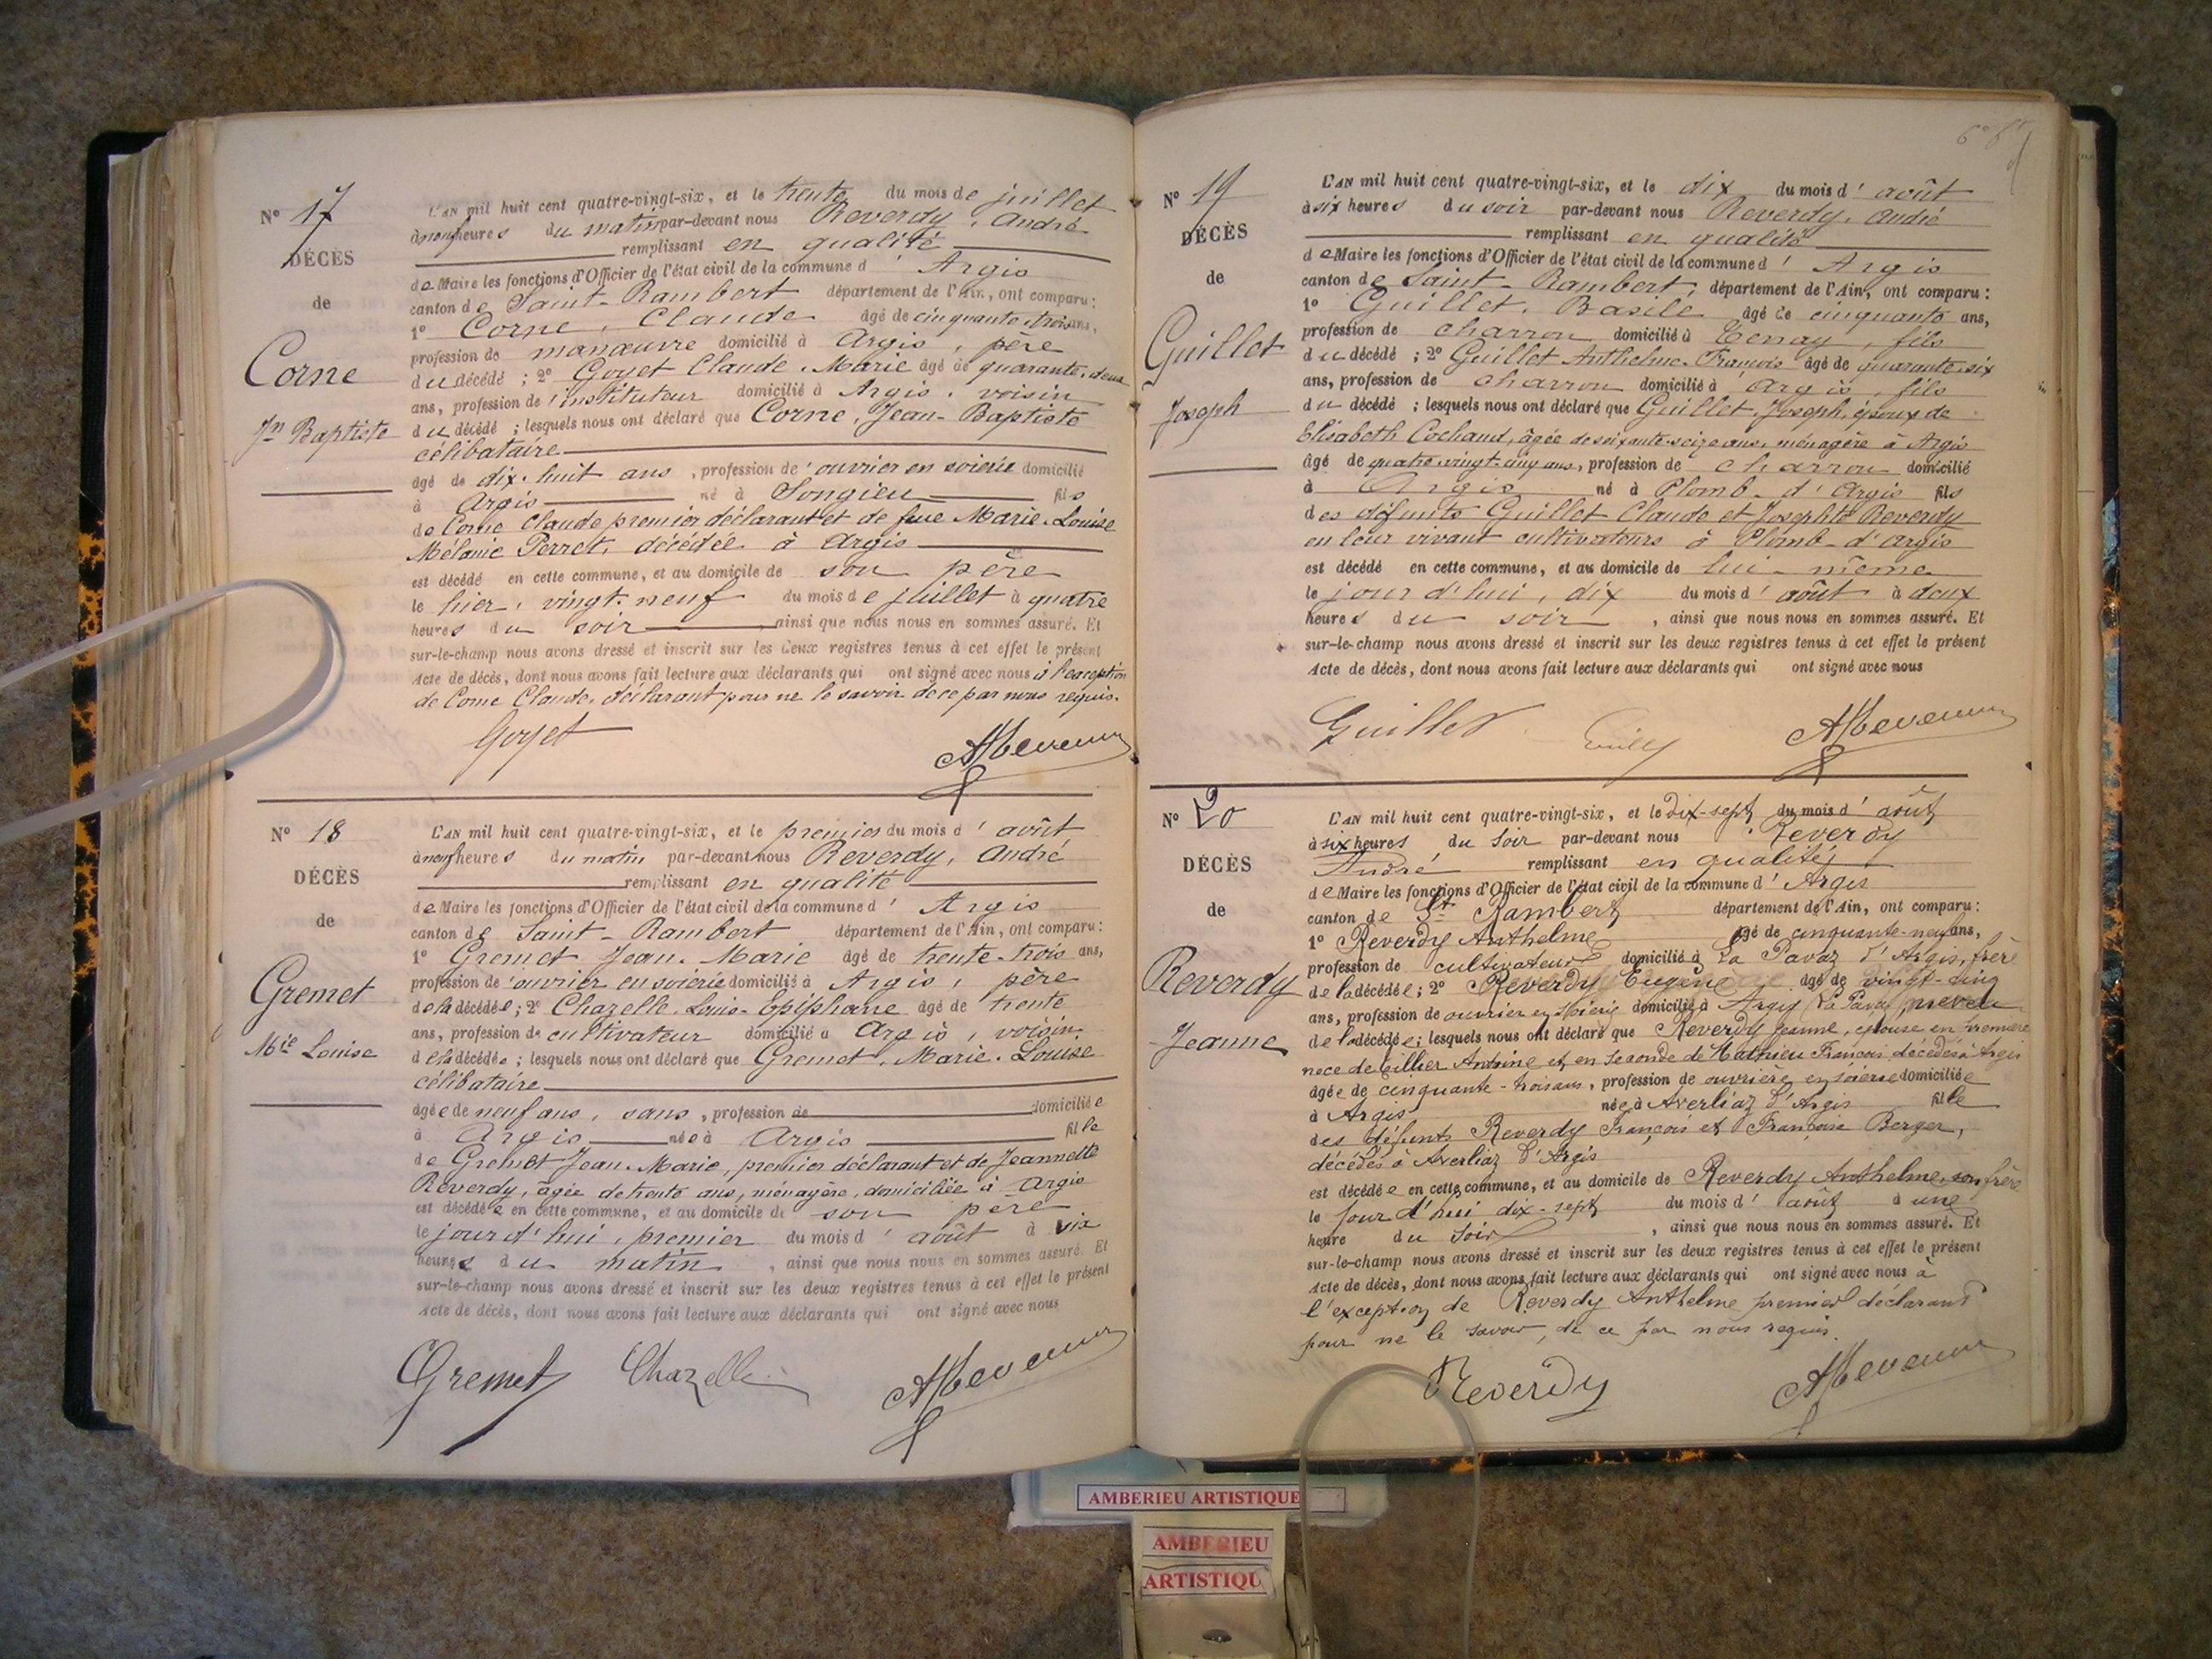 N° 17
DÉCÈS
de
Corne
Jn Baptiste
L'AN mil huit cent quatre-vingt-six, et le trente du mois de juillet
à neuf heures du matin par-devant nous Reverdy, André
remplissant en qualité
de Maire les fonctions d'Officier de l'état civil de la commune d'Argis
canton de Saint-Rambert département de l'Ain, ont comparu :
1° Corne, Claude âgé de cinquante-trois ans,
profession de manœuvre domicilié à Argis, père
du décédé ; 2° Goyet Claude-Marie âgé de quarante-deux
ans, profession de instituteur domicilié à Argis, voisin
du décédé ; lesquels nous ont déclaré que Corne, Jean-Baptiste
célibataire
âgé de dix-huit ans, profession de ouvrier en soierie domicilié
à Argis né à Songieu fils
de Corne Claude premier déclarant et de feue Marie-Louise
Mélanie Perret, décédée à Argis
est décédé en cette commune, et au domicile de son père
le hier, vingt-neuf du mois de juillet à quatre
heures du soir, ainsi que nous nous en sommes assuré. Et
sur-le-champ nous avons dressé et inscrit sur les deux registres tenus à cet effet le présent
Acte de décès, dont nous avons fait lecture aux déclarants qui ont signé avec nous à l'exception
de Corne Claude, déclarant pour ne le savoir de ce par nous requis.
Goyet
N° 18
DÉCÈS
de
Gremet
Mie Louise
L'AN mil huit cent quatre-vingt-six, et le premier du mois d'août
à neuf heures du matin par-devant nous Reverdy, André
remplissant en qualité
de Maire les fonctions d'Officier de l'état civil de la commune d'Argis
canton de Saint-Rambert département de l'Ain, ont comparu :
1° Gremet Jean-Marie âgé de trente-trois ans,
profession de ouvrier en soierie domicilié à Argis, père
de la décédée ; 2° Chazelle, Louis-Epiphane âgé de trente
ans, profession de cultivateur domicilié à Argis, voisin
de la décédée ; lesquels nous ont déclaré que Gremet, Marie-Louise
célibataire
âgée de neuf ans, sans, profession de domiciliée
à Argis née à Argis fille
de Gremet Jean-Marie, premier déclarant et de Jeannette
Reverdy, âgée de trente ans, ménagère, domiciliée à Argis
est décédée en cette commune, et au domicile de son père
le jour d'hui, premier du mois d'août à six
heures du matin, ainsi que nous nous en sommes assuré. Et
sur-le-champ nous avons dressé et inscrit sur les deux registres tenus à cet effet le présent
Acte de décès, dont nous avons fait lecture aux déclarants qui ont signé avec nous
Gremet Chazelle
N° 19
DÉCÈS
de
Guillet
Joseph
L'AN mil huit cent quatre-vingt-six, et le dix du mois d'août
à six heures du soir par-devant nous Reverdy, André
remplissant en qualité
de Maire les fonctions d'Officier de l'état civil de la commune d'Argis
canton de Saint-Rambert, département de l'Ain, ont comparu :
1° Guillet, Basile âgé de cinquante ans,
profession de charron domicilié à Tenay, fils
du décédé ; 2° Guillet Anthelme-François âgé de quarante-six
ans, profession de charron domicilié à Argis, fils
du décédé ; lesquels nous ont déclaré que Guillet, Joseph, époux de
Elisabeth Cochand, âgée de soixante-seize ans, ménagère à Argis
âgé de quatre-vingt-cinq ans, profession de charron domicilié
à Argis né à Plomb-d'Argis fils
des défunts Guillet Claude et Josephte Reverdy
en leur vivant cultivateurs à Plomb-d'Argis
est décédé en cette commune, et au domicile de lui-même
le jour d'hui, dix du mois d'août à deux
heures du soir, ainsi que nous nous en sommes assuré. Et
sur-le-champ nous avons dressé et inscrit sur les deux registres tenus à cet effet le présent
Acte de décès, dont nous avons fait lecture aux déclarants qui ont signé avec nous
Guillet
N° 20
DÉCÈS
de
Reverdy
Jeanne
L'AN mil huit cent quatre-vingt-six, et le Dix-sept du mois d'août
à six heures du Soir par-devant nous Reverdy
André remplissant en qualité
de Maire les fonctions d'Officier de l'état civil de la commune d'Argis
canton de St Rambert département de l'Ain, ont comparu :
1° Reverdy Anthelme âgé de cinquante-neuf ans,
profession de cultivateur domicilié à La Pavaz d'Argis, frère
de la décédée ; 2° Reverdy Eugène âgé de vingt-cinq
ans, profession de ouvrier en soierie domicilié à Argis (La Pavaz) neveu
de la décédée ; lesquels nous ont déclaré que Reverdy Jeanne, épouse en première
noce de Tillier Antoine et en seconde de Mathieu François décédés à Argis
âgée de cinquante-trois ans, profession de ouvrière en soierie domiciliée
à Argis née à Averliaz d'Argis fille
des défunts Reverdy François et Françoise Berger,
décédés à Averliaz d'Argis
est décédée en cette commune, et au domicile de Reverdy Anthelme, son frère
le jour d'hui dix-sept du mois d'août à une
heure du Soir, ainsi que nous nous en sommes assuré. Et
sur-le-champ nous avons dressé et inscrit sur les deux registres tenus à cet effet le présent
Acte de décès, dont nous avons fait lecture aux déclarants qui ont signé avec nous à
l'exception de Reverdy Anthelme premier déclarant
pour ne le savoir, de ce par nous requis.
Reverdy
AMBERIEU ARTISTIQUE
AMBERIEU
ARTISTIQU